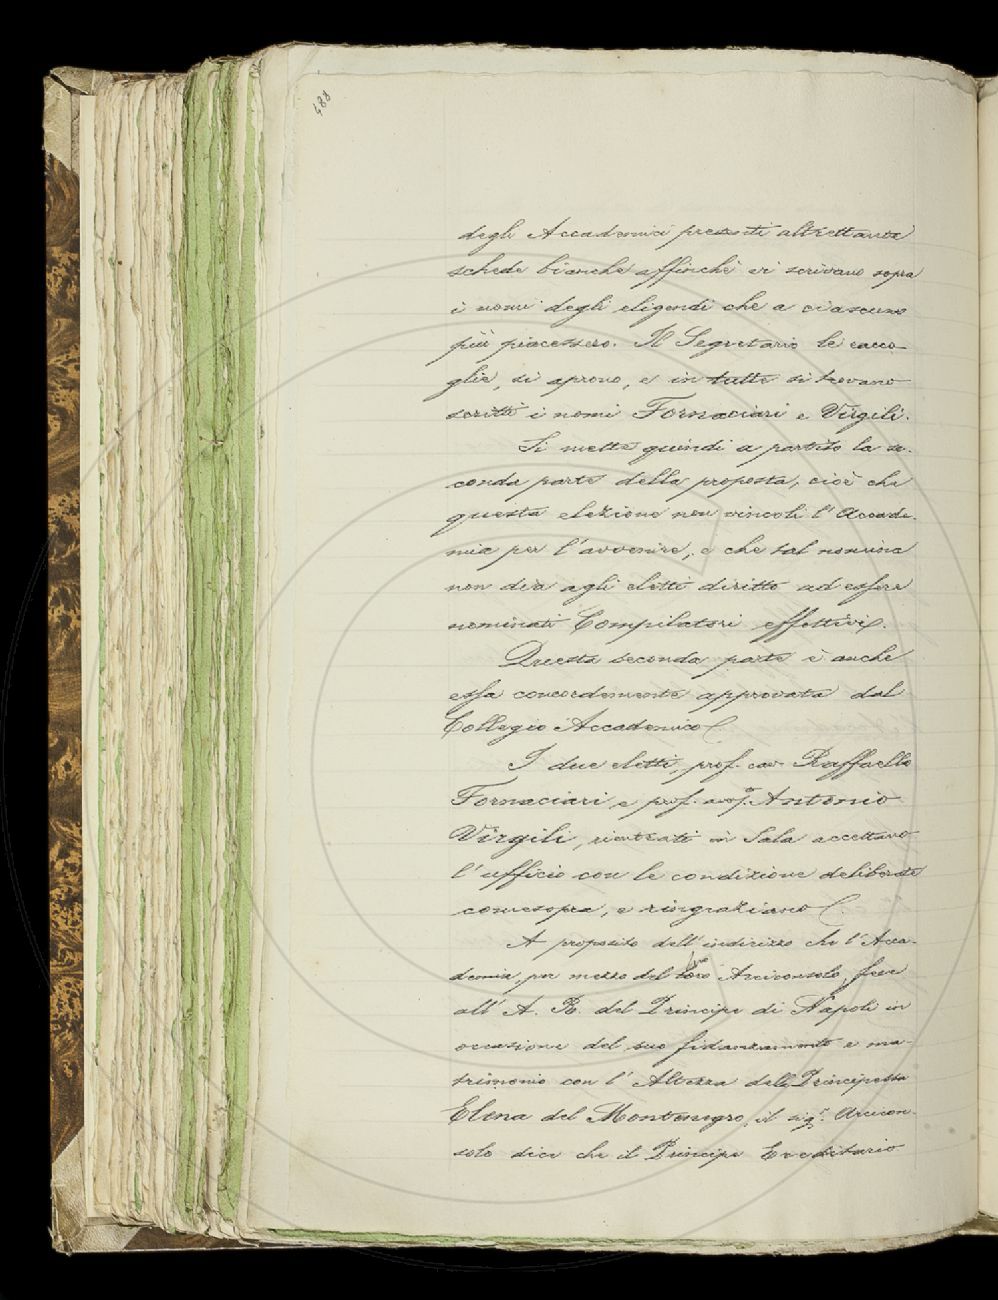 488
degli Accademici presenti altrettante
schede bianche affinché vi scrivano sopra
i nomi degli eligendi che a ciascuno
più piacessero. Il Segretario le racco-
glie, si aprono, e in tutte si trovano
scritti i nomi Fornaciari e Virgili.
Si mette quindi a partito la se-
conda parte della proposta, cioè che
questa elezione non vincoli l'Accade-
mia per l'avvenire, e che tal nomina
non dia agli eletti diritto ad essere
nominati Compilatori effettivi.
Questa seconda parte è anche
essa concordemente approvata dal
Collegio Accademico.
I due eletti, prof. cav. Raffaello
Fornaciari, e prof. Antonio
Virgili, rientrati in Sala accettano
l'ufficio con le condizione deliberate
comesopra, e ringraziano.
A proposito dell'indirizzo che l'Acca-
demia, per mezzo del suo Arciconsolo, fece
all'A. R. del Principe di Napoli in
occasione del suo fidanzamento e ma-
trimonio con l'Altezza della Principessa
Elena del Montenegro, il sigr. Arcicon-
solo dice che il Principe Ereditario